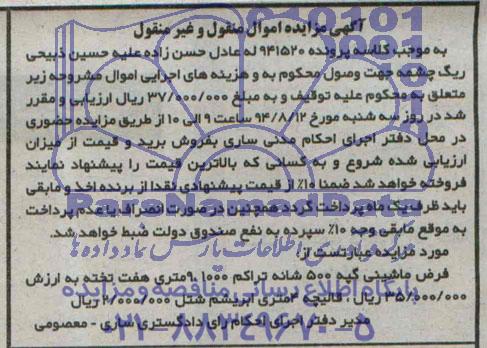 آگهی مزایده اموال منقول و غیر منقول
به موجب کلاسه پرونده ۹۴۱۵۲۰ له عادل حسن زاده علیه حسین ذبیحی
ریگ چشمه جهت وصول محکوم به و هزینه های اجرایی اموال مشروحه زیر
متعلق به محکوم علیه توقیف و به مبلغ ۳۷/۰۰۰/۰۰۰ ریال ارزیابی و مقرر
شد در روز سه شنبه مورخ ۹۴/۸/۱۲ ساعت ۹ الی ۱۰ از طریق مزایده حضوری
در محل دفتر اجرای احکام مدنی ساری بفروش برسد و قیمت از میزان
ارزیابی شده شروع و به کسانی که بالاترین قیمت را پیشنهاد نمایند
فروخته خواهد شد ضمنا ۱۰٪ از قیمت پیشنهادی نقدا از برنده اخذ و مابقی
باید ظرف یک ماه پرداخت گردد همچنین در صورت انصراف یا عدم پرداخت
به موقع مابقی وجه ۱۰٪ سپرده به نفع صندوق دولت ضبط خواهد شد.
مورد مزایده عبارتست از:
فرض ماشینی گبه ۵۰۰ شانه تراکم ۱۰۰۰ ۹متری هفت تخته به ارزش
۳۵/۰۰۰/۰۰۰ ریال، قالیچه ۳متری ابریشم شتل ۲/۰۰۰/۰۰۰ ریال
مدیر دفتر اجرای احکام رای دادگستری ساری - معصومی
ParsNamadData
پایگاه اطلاع رسانی مناقصه و مزایده
۰۲۱-۸۸۳۴۹۶۷۰-۵